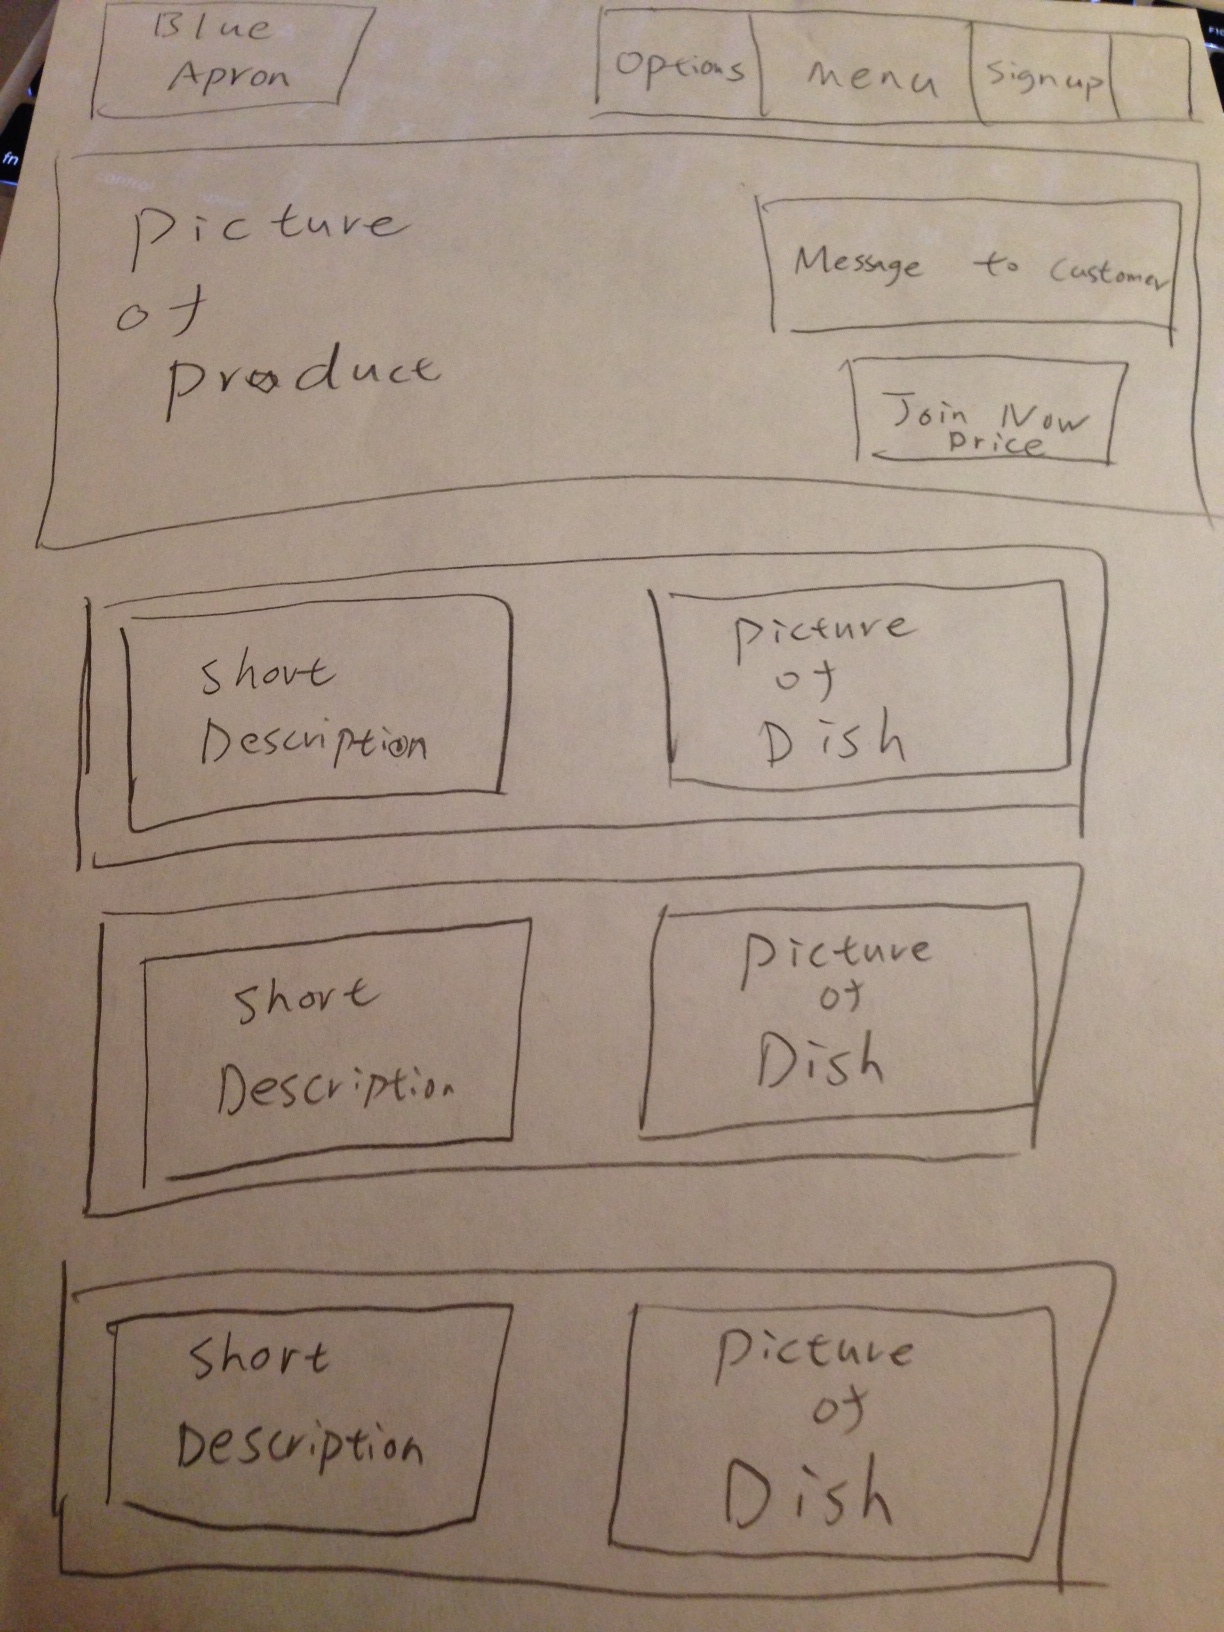 Blue
Apron
Options
menu
Signup
Picture
of
product
Message to Customer
Join Now
Price
short
Description
Picture
of
Dish
short
Description
Picture
of
Dish
short
Description
Picture
of
Dish
fn
control